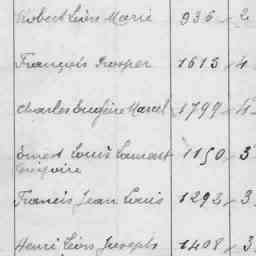 Robert Léon Marie 936 2
François Prosper 1615 4
Charles Eugène Marcel 1799 4
Ernest Louis Laurent 1150 3
Grégoire
Francis Jean Louis 1292 3
Henri Léon Joseph 1408 3